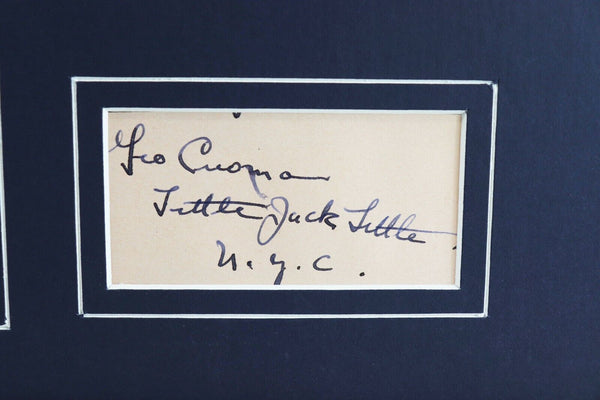 Geo Cuoma
Little Jack Little
N. Y. C.